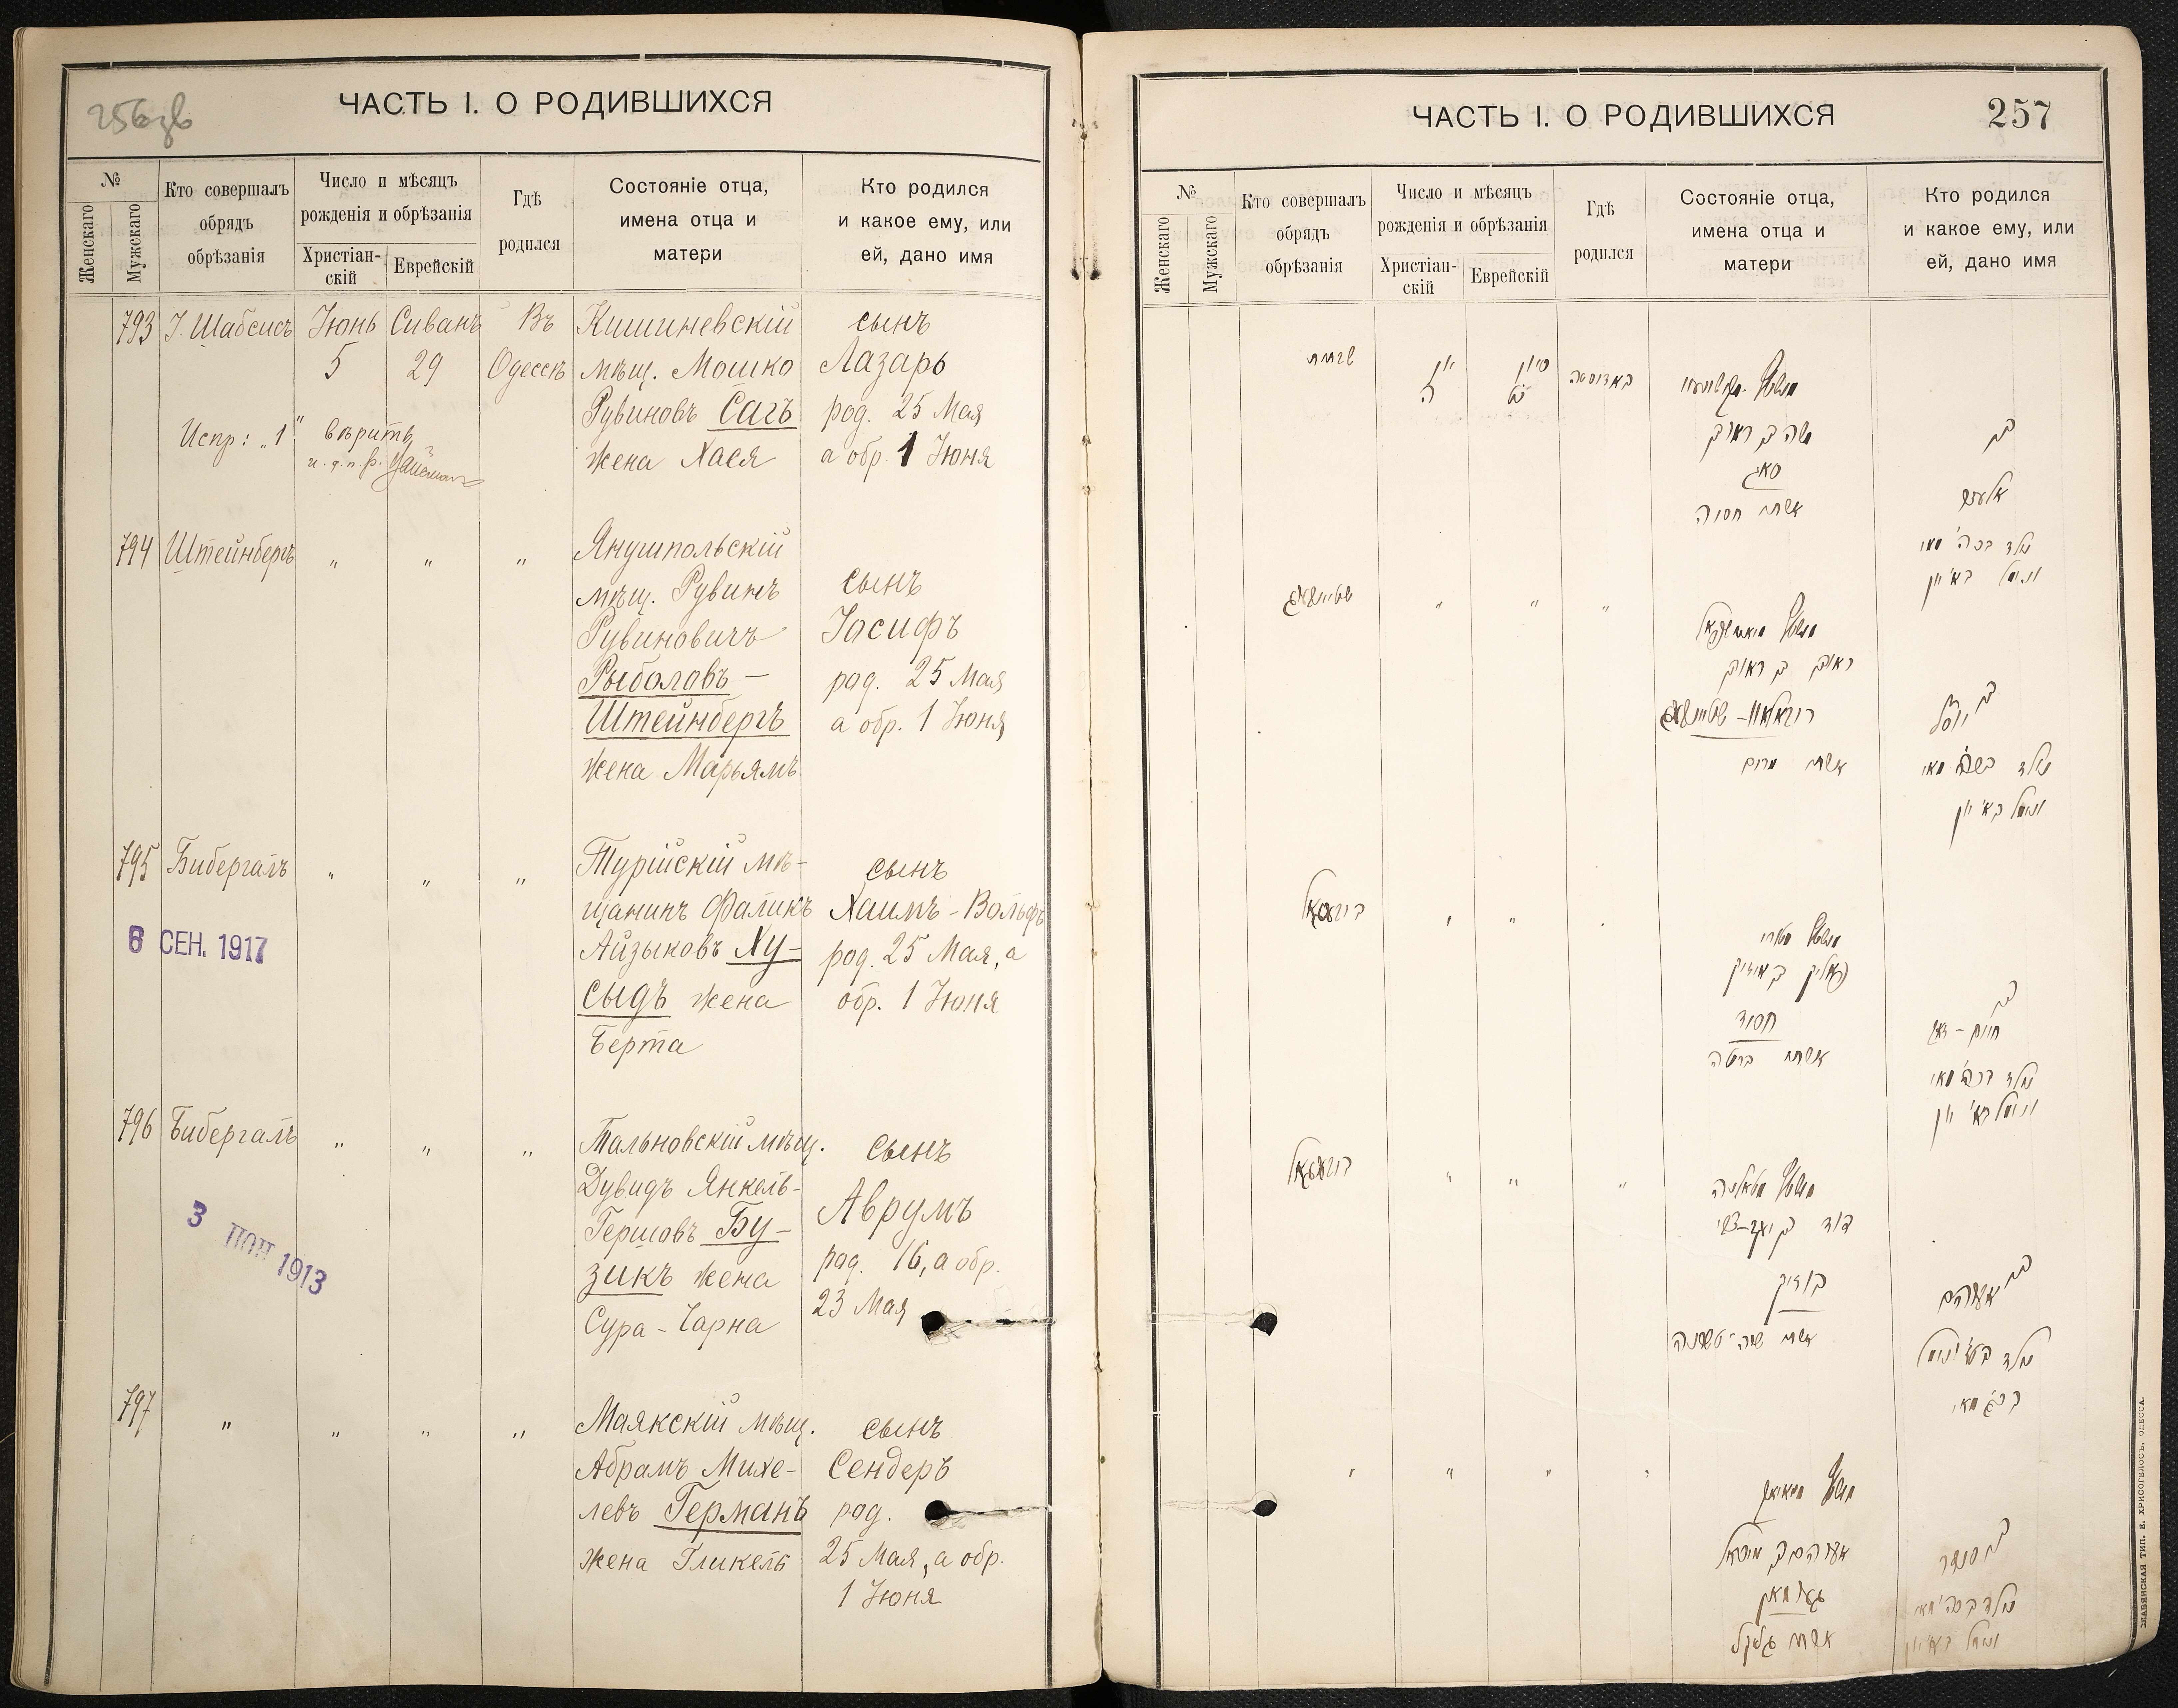 256 зв
ЧАСТЬ I. О РОДИВШИХСЯ
№
Женскаго
Мужскаго
Кто совершалъ
обрядъ
обрѣзанія
Число и мѣсяцъ
рожденія и обрѣзанія
Христіан-
скій
Еврейскій
Гдѣ
родился
Состояніе отца,
имена отца и
матери
Кто родился
и какое ему, или
ей, дано имя
793
І. Шабсисъ
Іюнь
5
Сиванъ
29
Въ
Одессѣ
Кишиневскій
мѣщ. Мошко
Рувиновъ Сагъ
жена Хася
сынъ
Лазарь
род. 25 Мая
а обр. 1 Іюня
Испр: „1" вѣрить
794
Штейнбергъ
" " "
Янушпольскій
мѣщ. Рувинъ
Рувиновичъ
Рыболовъ –
Штейнбергъ
жена Марьямъ
сынъ
Іосифъ
род. 25 Мая
а обр. 1 Іюня
795
Бибергалъ
" " "
Турійскій мѣ-
щанинъ Фаликъ
Айзыковъ Ху-
сыдъ жена
Берта
сынъ
Хаимъ-Вольфъ
род. 25 Мая, а
обр. 1 Іюня
6 СЕН. 1917
796
Бибергалъ
" " "
Тальновскій мѣщ.
Дувидъ Янкель-
Гершовъ Бу-
зикъ жена
Сура-Чарна
сынъ
Аврумъ
род. 16, а обр.
23 Мая
3 1913
797
" " " "
Маякскій мѣщ.
Абрамъ Михе-
левъ Германъ
жена Гликель
сынъ
Сендеръ
род.
25 Мая, а обр.
1 Іюня
ЧАСТЬ I. О РОДИВШИХСЯ
257
№
Женскаго
Мужскаго
Кто совершалъ
обрядъ
обрѣзанія
Число и мѣсяцъ
рожденія и обрѣзанія
Христіан-
скій
Еврейскій
Гдѣ
родился
Состояніе отца,
имена отца и
матери
Кто родился
и какое ему, или
ей, дано имя
יון
ה
סיון
כט
באדעססא
משה בן ראובן
סאג
אשתו חסיה
בן
אלעזר
נולד בכה' מאי
ונימול בא' יון
שטיינבערג
" " "
ראובן בן ראובן
אשתו מרים
בן יוסף
נולד בכה' מאי
ונימול בא' יון
ביבערגאל
פאליק בן אייזיק
חסיד
אשתו ברטה
בן
נולד בכה' מאי
ונימול בא' יון
ביבערגאל
" " "
דוד בן יעקב-צבי
בוזיק
אשתו שרה-טשרנה
בן
אברהם
בכג' מאי
" " " "
אברהם בן מיכאל
גערמאן
אשתו גליקל
בן סענדר
נולד בכה' מאי
ונימול בא' יון
СЛАВЯНСКАЯ ТИП. Е. ХРИСОГЕЛОСЪ, ОДЕССА.